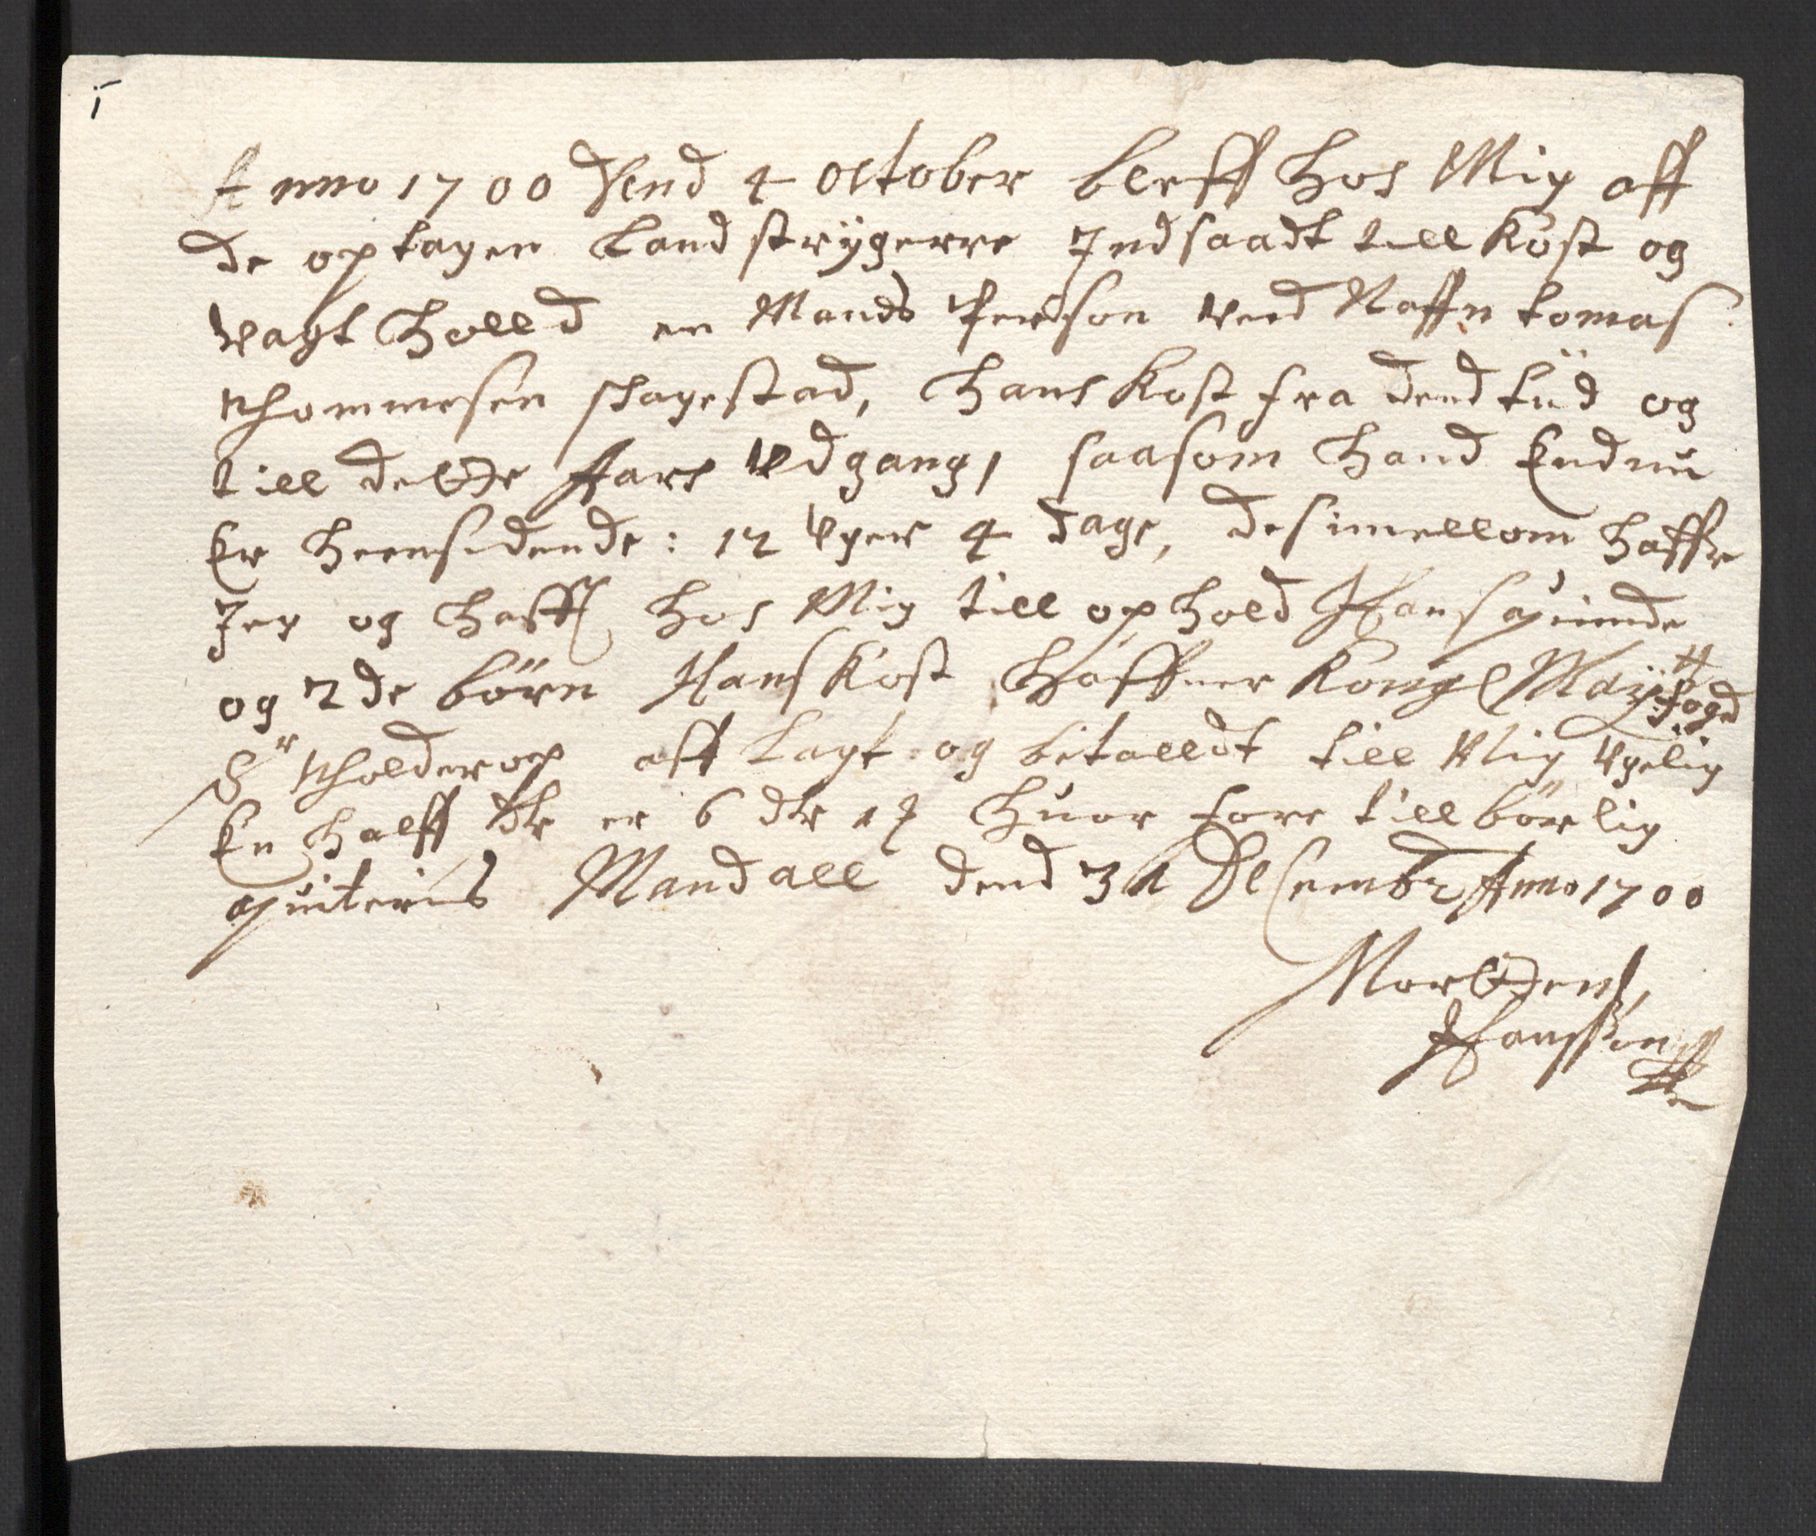 i
Anno 1700 dend 4 October bleff hos Mig aff
de optagen Landstrÿgerre Indsaadt till kost og
vagt holld en Mands Person ved Naffn tomas
thommesen stagestad, hans kost fra dend tiid og
till dette Aars Udgang, saasom hand Endnu
Er heersidende: 12 Uger 4 dage, desimellom haffr
Jeg og hafft hos Mig till ophold Hans quinde
og 2de børn Hans kost haffuer kongl Maÿtt fogd
Sr tholderop aff Lagt og bitalldt till Mig Ugelig
En halff dlr er 6 dlr 1 # huor fore tillbørlig
quiteris Mandall dend 31 Decembr Anno 1700
Mortten
Hanssøn